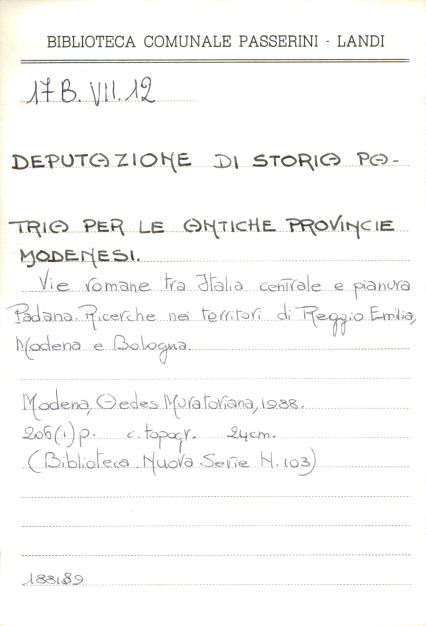 BIBLIOTECA COMUNALE PASSERINI - LANDI
17 B. VII. 12
DEPUTAZIONE DI STORIA PA-
TRIA PER LE ANTICHE PROVINCIE
MODENESI.
Vie romane tra Italia centrale e pianura
Padana. Ricerche nei territori di Reggio Emilia,
Modena e Bologna.
Modena, Aedes Muratoriana, 1988.
206(1) p. c. topogr. 24cm.
(Biblioteca. Nuova Serie N. 103)
183189